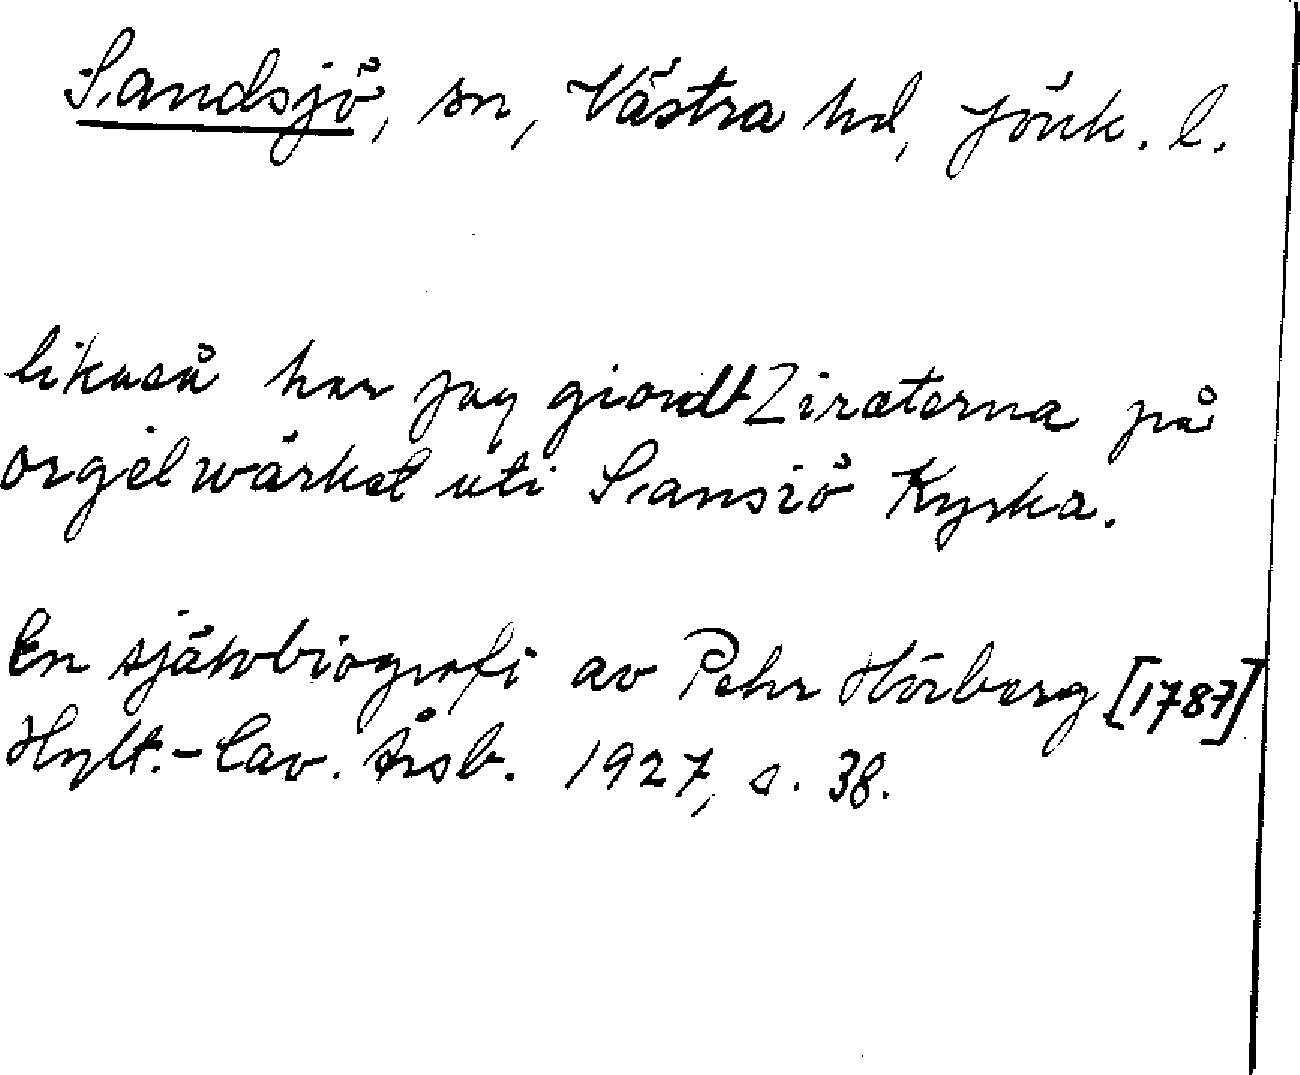 Sandsjö, sn, Västra hd, Jönk. l.
likaså har jag giordt Ziraterna på
orgelwärket uti Sansiö Kyrka.
En självbiografi av Pehr Hörberg [1787]
Hylt.-Cav. Årsb. 1927, s. 38.